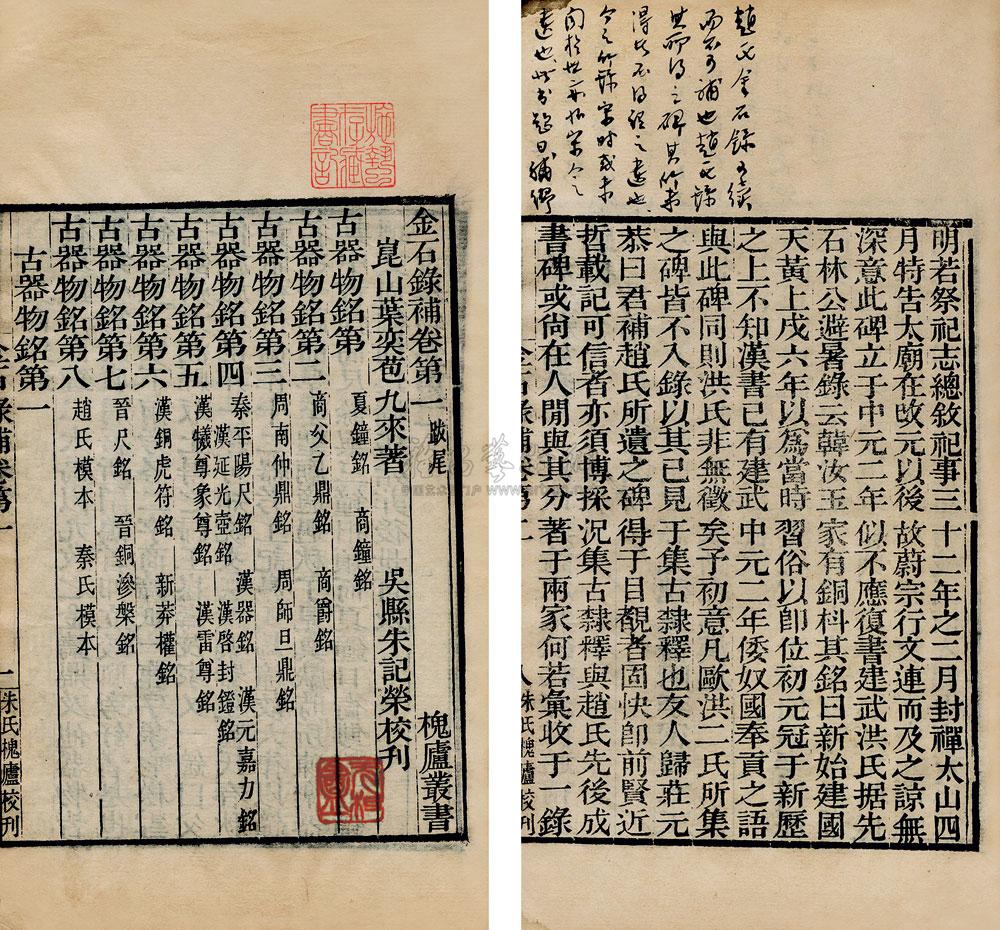 金石錄補卷第一 跋尾 槐廬叢書
崑山葉奕苞九來著 吳縣朱記榮校刊
古器物銘第 夏鐘銘 商鐘銘
古器物銘第二 商父乙鼎銘 商爵銘
古器物銘第三 周南仲鼎銘 周師旦鼎銘
古器物銘第四 秦平陽尺銘 漢器銘 漢元嘉刀銘
漢延光壺銘 漢啓封鐙銘
古器物銘第五 漢犧尊象尊銘 漢雷尊銘
古器物銘第六 漢銅虎符銘 新莽權銘
古器物銘第七 晉尺銘 晉銅滲槃銘
古器物銘第八 趙氏模本 秦氏模本
古器物銘第一
金石錄補卷第一 一 朱氏槐廬校刊
趙氏金石錄有續
而不可補也趙氏錄
其所得之碑其所未
得者不得謂之遺也
今之所錄宋時或未
遺也此書題曰補
明若祭祀志總敘祀事三十二年之二月封禪太山四
月特告太廟在改元以後故蔚宗行文連而及之諒無
深意此碑立于中元二年似不應復書建武洪氏据先
石林公避暑錄云韓汝玉家有銅科其銘曰新始建國
天黃上戊六年以為當時習俗以即位初元冠于新歷
之上不知漢書已有建武中元二年倭奴國奉貢之語
與此碑同則洪氏非無徵矣予初意凡歐洪二氏所集
之碑皆不入錄以其已見于集古隸釋也友人歸莊元
恭曰君補趙氏所遺之碑得于目覩者固快卽前賢近
哲載記可信者亦須博採況集古隸釋與趙氏先後成
書碑或尚在人閒與其分著于兩家何若彙收于一錄
金石錄補卷第二 八 朱氏槐廬校刊